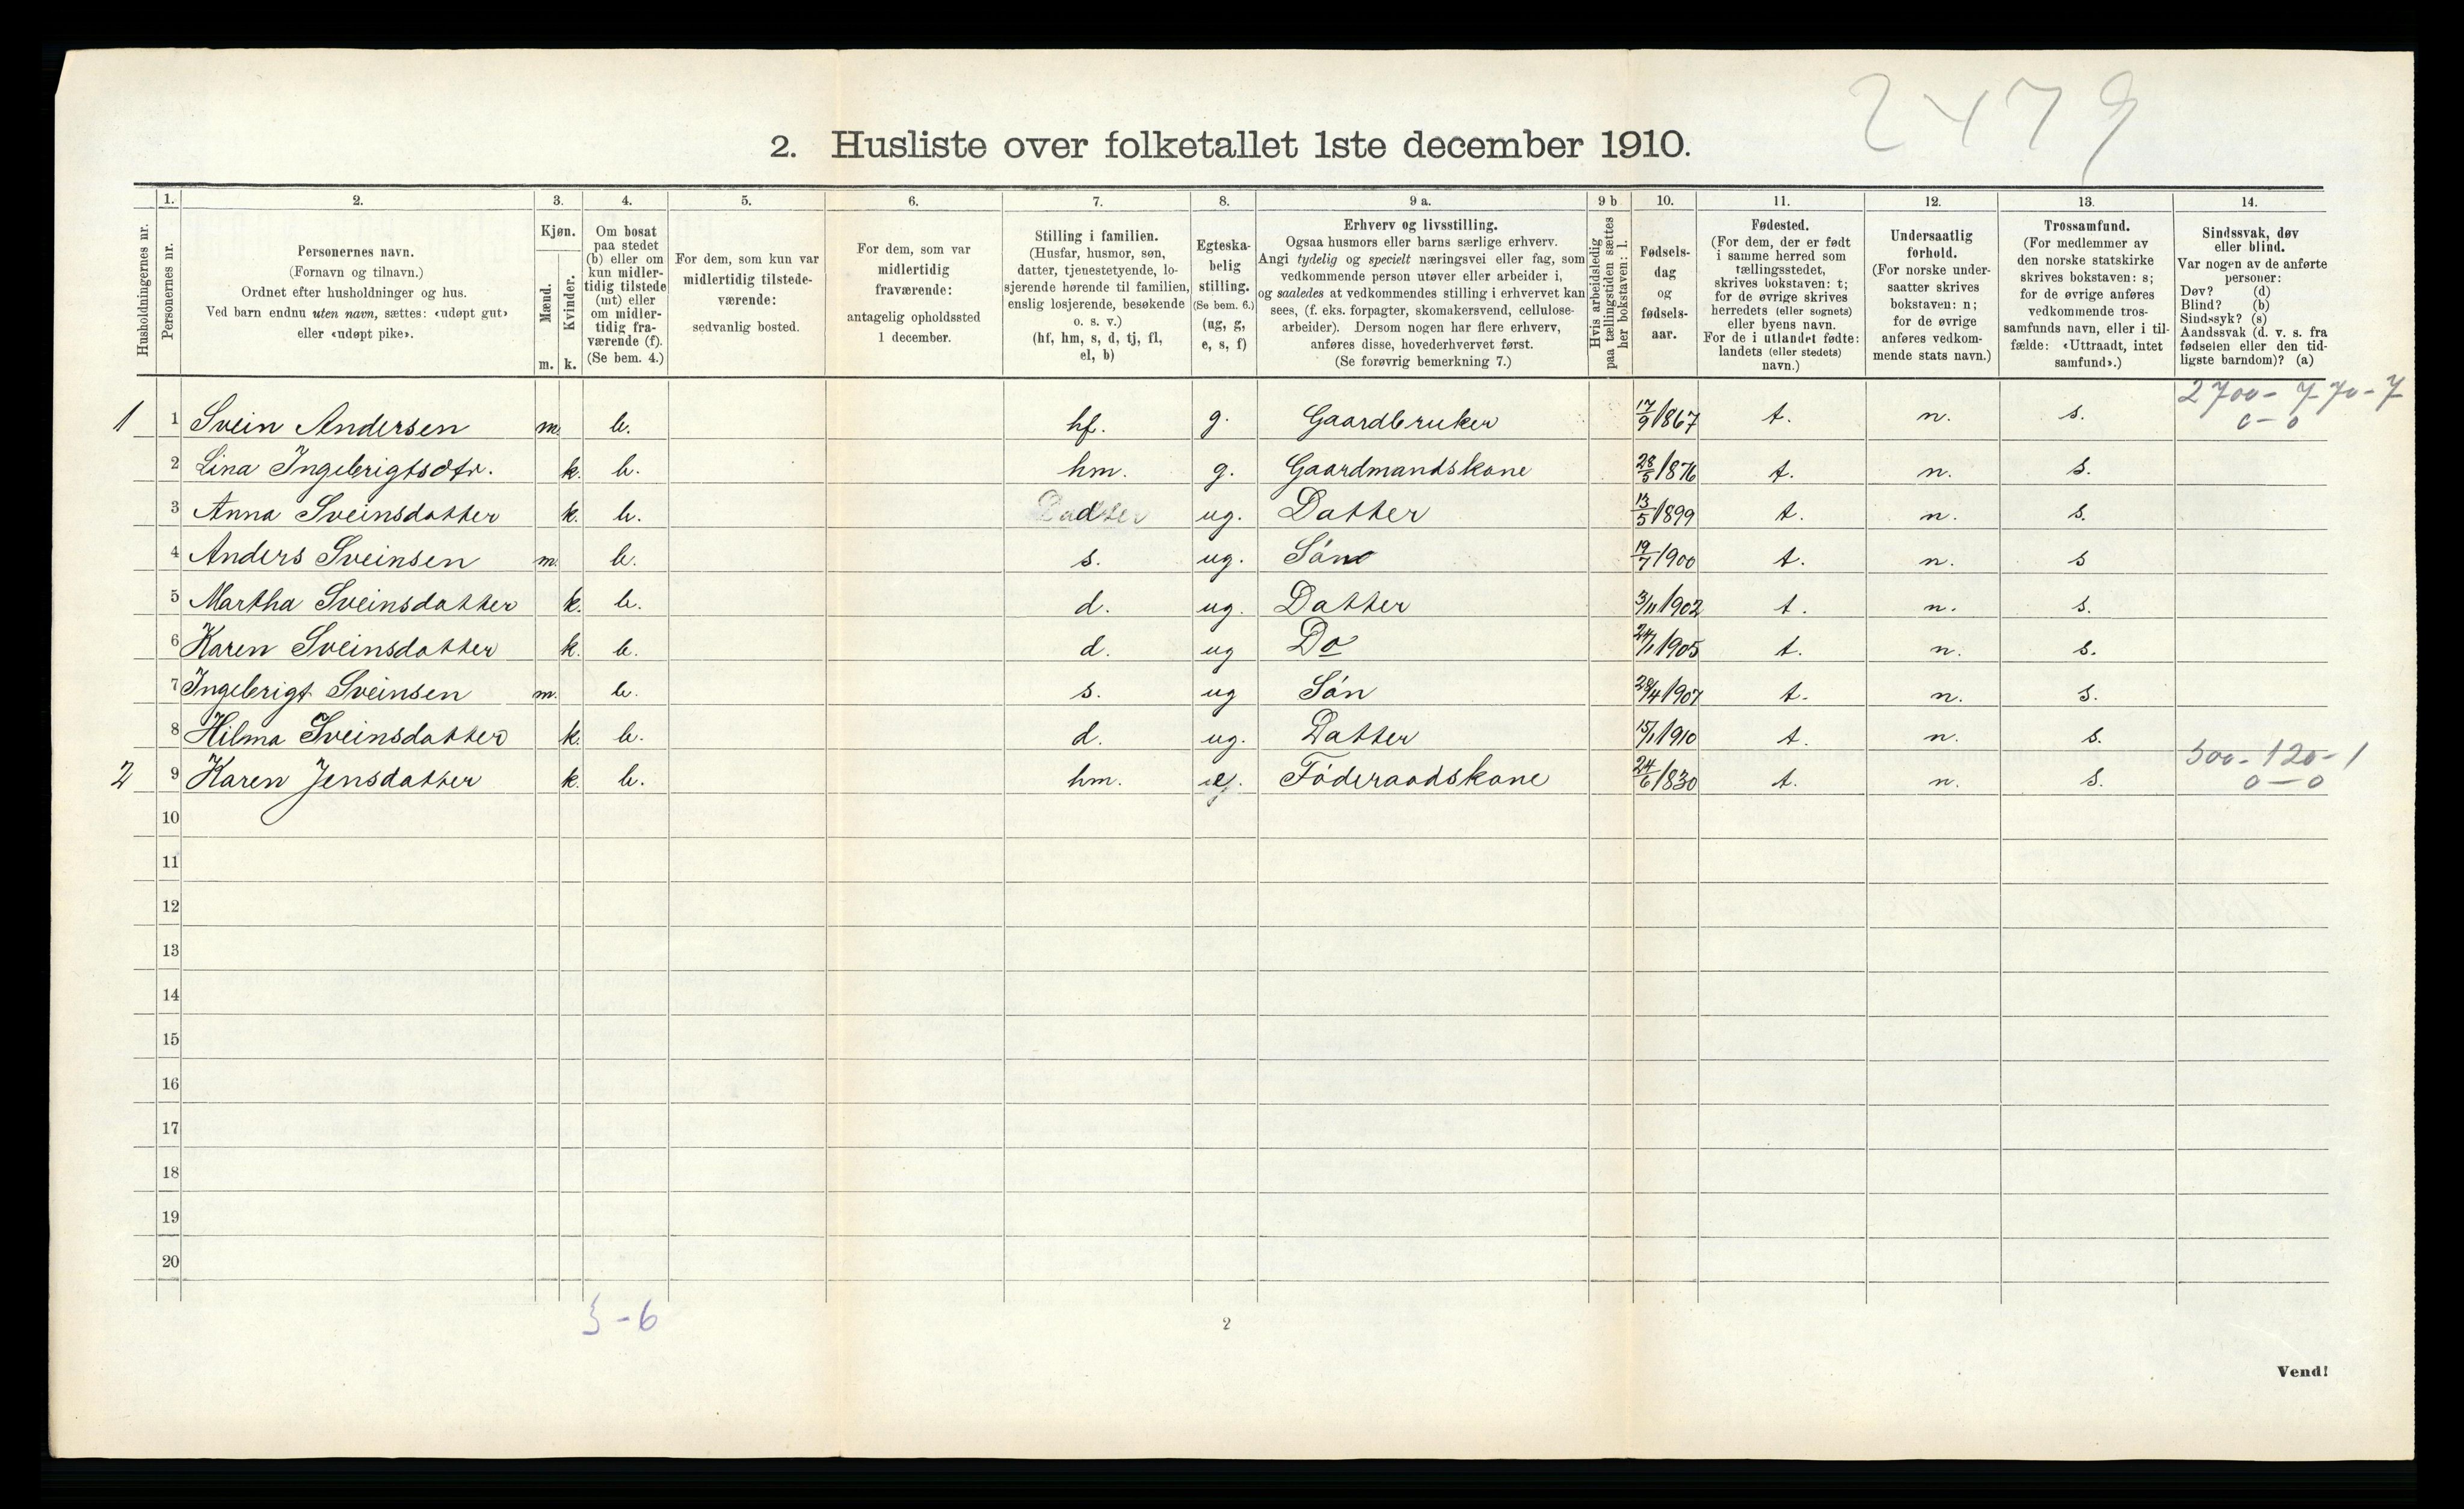 2479
2. Husliste over folketallet 1ste december 1910.
Husholdningernes nr.
1. Personernes nr.
2. Personernes navn.
(Fornavn og tilnavn.)
Ordnet efter husholdninger og hus.
Ved barn endnu uten navn, sættes: «udøpt gut»
eller «udøpt pike».
3. Kjøn.
Mænd. m.
Kvinder. k.
4. Om bosat
paa stedet
(b) eller om
kun midler-
tidig tilstede
(mt) eller
om midler-
tidig fra-
værende (f).
(Se bem. 4.)
5. For dem, som kun var
midlertidig tilstede-
værende:
sedvanlig bosted.
6. For dem, som var
midlertidig
fraværende:
antagelig opholdssted
1 december.
7. Stilling i familien.
(Husfar, husmor, søn,
datter, tjenestetyende, lo-
sjerende hørende til familien,
enslig losjerende, besøkende
o. s. v.)
(hf, hm, s, d, tj, fl,
el, b)
8. Egteska-
belig
stilling.
(Se bem. 6.)
(ug, g,
e, s, f)
9 a. Erhverv og livsstilling.
Ogsaa husmors eller barns særlige erhverv.
Angi tydelig og specielt næringsvei eller fag, som
vedkommende person utøver eller arbeider i,
og saaledes at vedkommendes stilling i erhvervet kan
sees, (f. eks. forpagter, skomakersvend, cellulose-
arbeider). Dersom nogen har flere erhverv,
anføres disse, hovederhvervet først.
(Se forøvrig bemerkning 7.)
9 b Hvis arbeidsledig
paa tællingstiden sættes
her bokstaven: l.
10. Fødsels-
dag
og
fødsels-
aar.
11. Fødested.
(For dem, der er født
i samme herred som
tællingsstedet,
skrives bokstaven: t;
for de øvrige skrives
herredets (eller sognets)
eller byens navn.
For de i utlandet fødte:
landets (eller stedets)
navn.)
12. Undersaatlig
forhold.
(For norske under-
saatter skrives
bokstaven: n;
for de øvrige
anføres vedkom-
mende stats navn.)
13. Trossamfund.
(For medlemmer av
den norske statskirke
skrives bokstaven: s;
for de øvrige anføres
vedkommende tros-
samfunds navn, eller i til-
fælde: «Uttraadt, intet
samfund».)
14. Sindssvak, døv
eller blind.
Var nogen av de anførte
personer:
Døv? (d)
Blind? (b)
Sindssyk? (s)
Aandssvak (d. v. s. fra
fødselen eller den tid-
ligste barndom)? (a)
2700 - 770 - 7
0 - 0
1 1 Svein Andersen m. b. hf. g. Gaardbruker 17/9 1867 t. n. s.
2 Lina Ingebrigtsdtr. k. b. hm. g. Gaardmandskone 28/5 1876 t. n. s.
3 Anna Sveinsdatter k. b. d ug. Datter 13/5 1899 t. n. s.
4 Anders Sveinsen m. b. s. ug. Søn 19/7 1900 t. n. s
5 Martha Sveinsdatter k. b. d. ug. Datter 3/11 1902 t. n. s.
6 Karen Sveinsdatter k. b. d. ug Do 24/1 1905 t. n. s.
7 Ingebrigt Sveinsen m. b. s. ug Søn 28/4 1907 t. n. s.
8 Hilma Sveinsdatter k. b. d. ug. Datter 15/1 1910 t. n. s.
500 - 120 - 1
0 - 0
2 9 Karen Jensdatter k. b. hm. e. Föderaadskone 24/6 1830 t. n. s.
10
11
12
13
14
15
16
17
18
19
20
3 - 6
2
Vend!